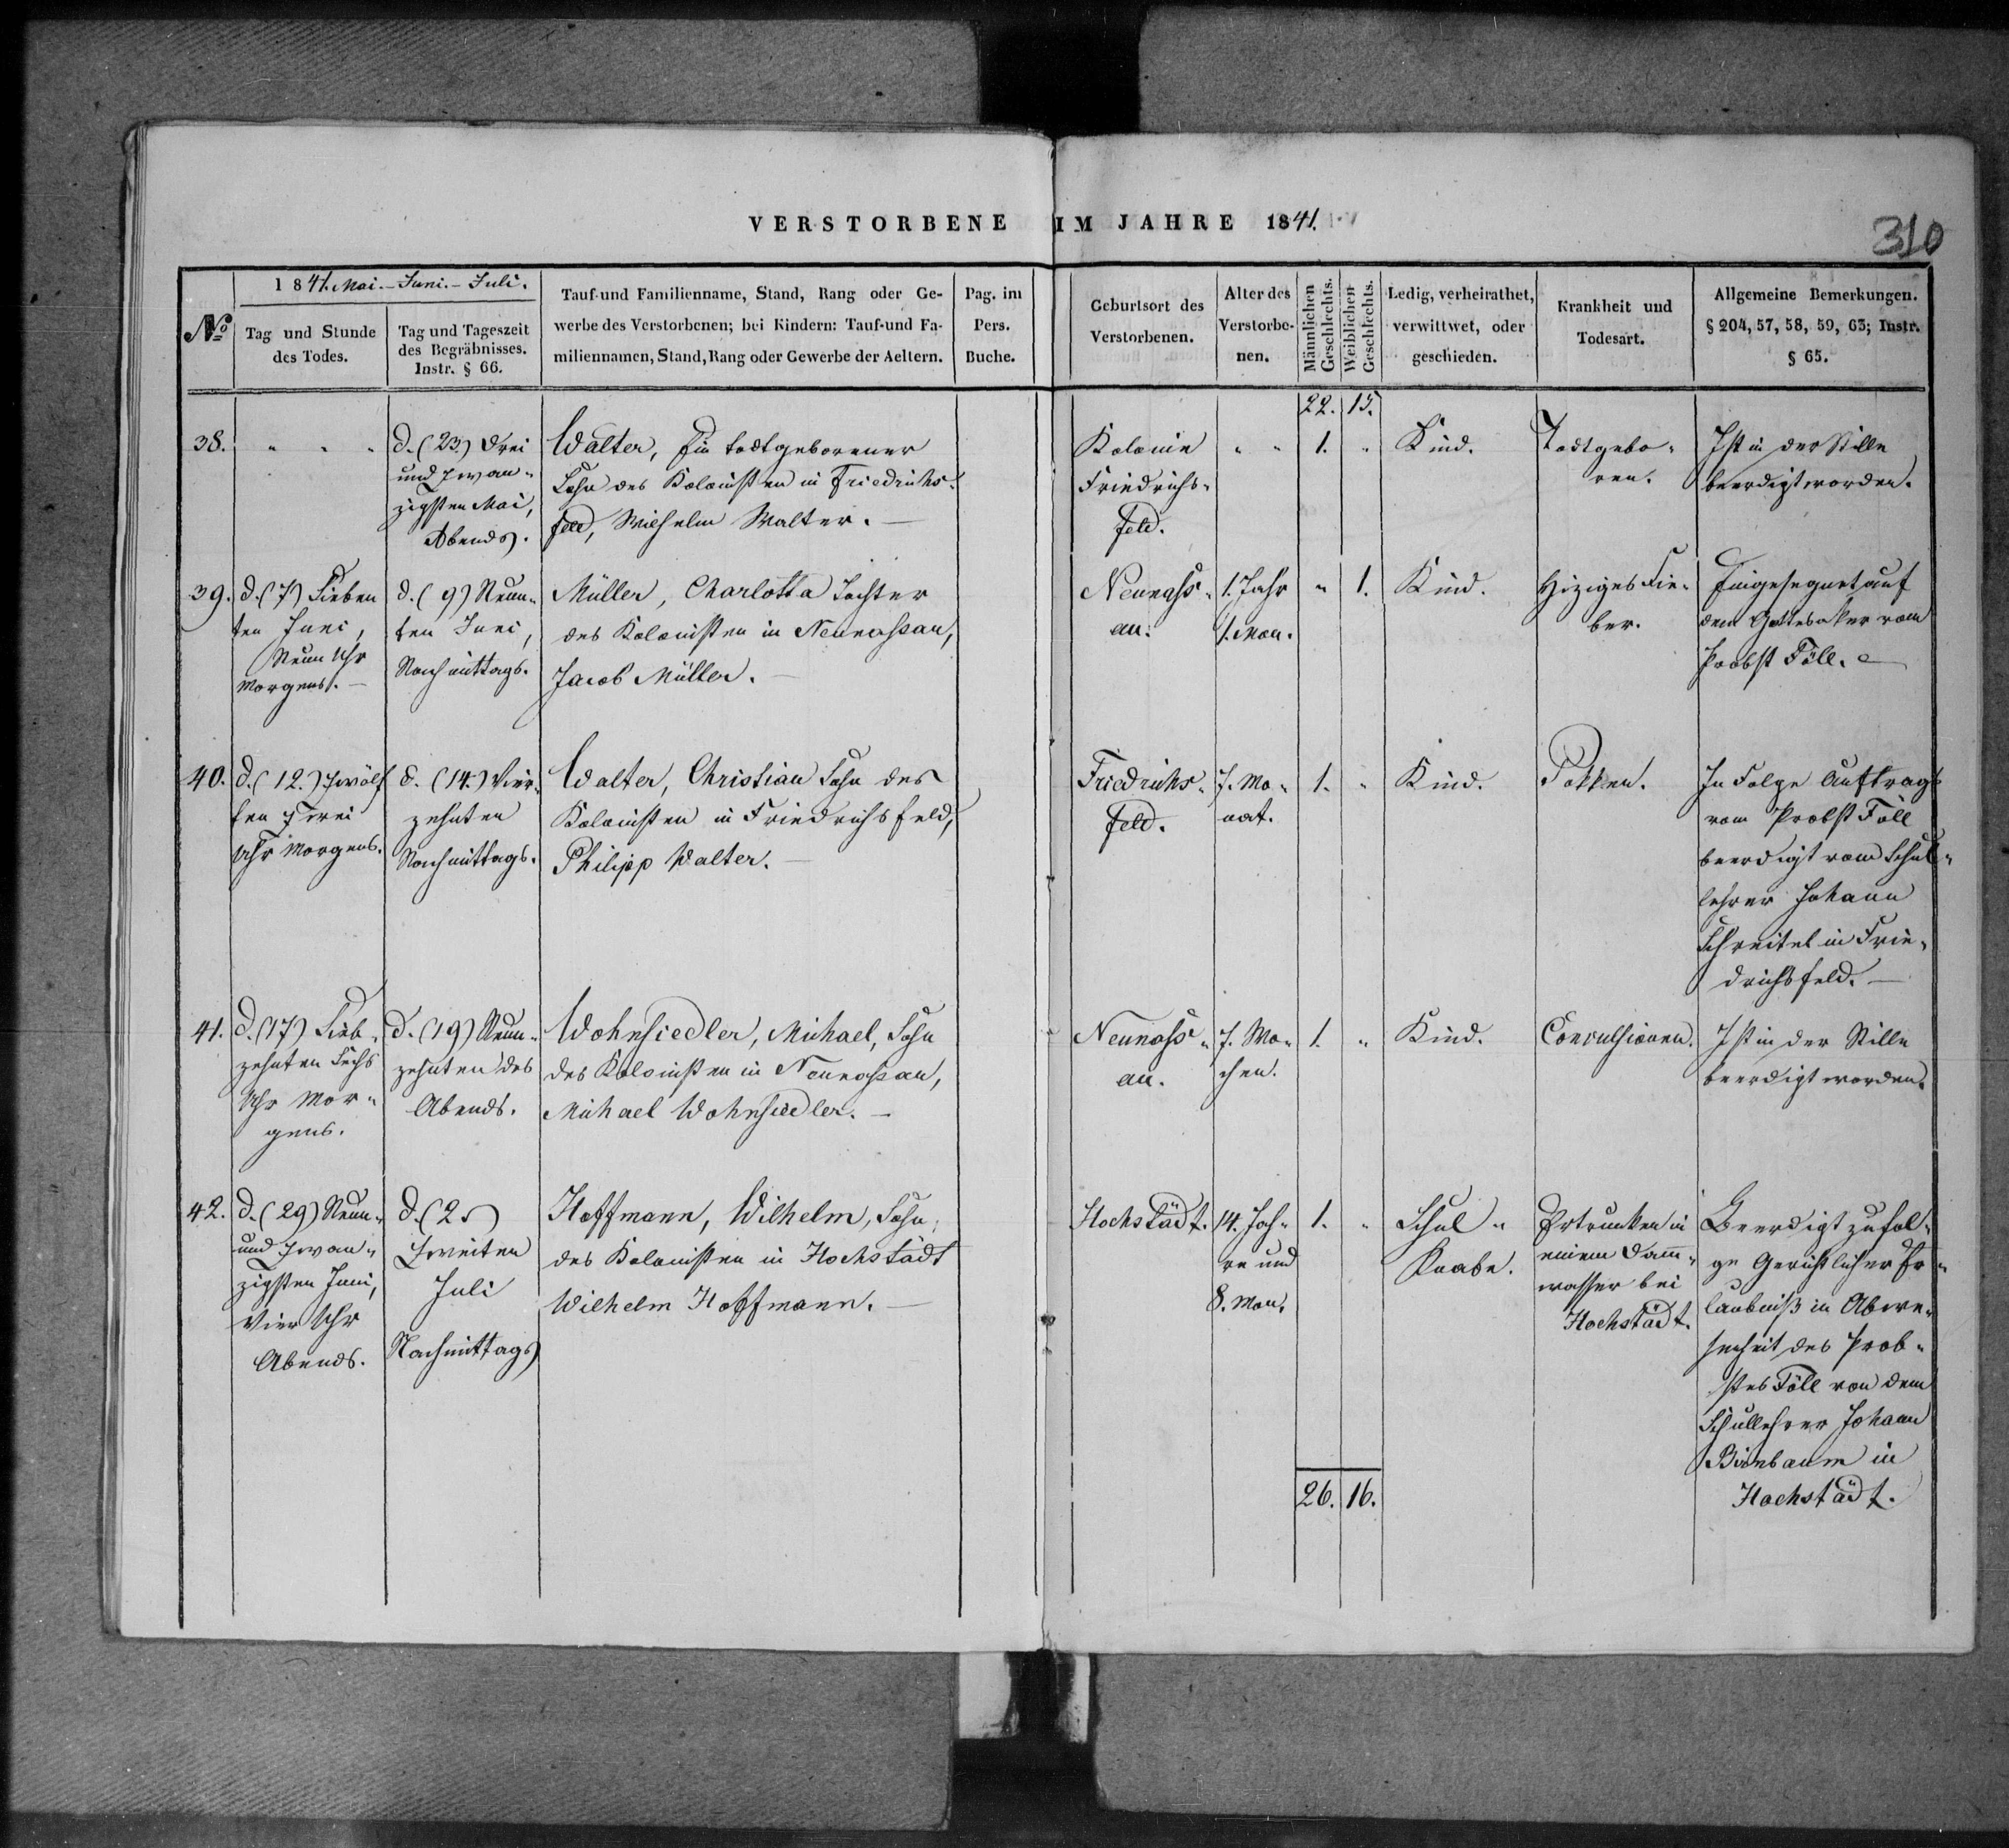 VERSTORBENE IM JAHRE 1841.
310
1841. Mai. - Juni. - Juli.
No
Tag und Stunde
des Todes.
Tag und Tageszeit
des Begräbnisses.
Instr. § 66.
Tauf-und Familienname, Stand, Rang oder Ge-
werbe des Verstorbenen; bei Kindern: Tauf-und Fa-
miliennamen, Stand, Rang oder Gewerbe der Aeltern.
Pag. im
Pers.
Buche.
Geburtsort des
Verstorbenen.
Alter des
Verstorbe-
nen.
Männlichen
Geschlechts.
Weiblichen
Geschlechts.
Ledig, verheirathet,
verwittwet, oder
geschieden.
Krankheit und
Todesart.
Allgemeine Bemerkungen.
§ 204, 57, 58, 59, 63; Instr.
§ 65.
22. 15.
38.
" " "
d. (23) Drei
und zwan-
zigsten Mai,
Abends.
Walter, Ein todtgeborener
Sohn des Kolonisten in Friedrichs-
feld, Wilhelm Walter. —
Kolonie
Friedrichs-
feld.
" "
1.
"
Kind.
Todtgebo-
ren.
Ist in der Stille
beerdigt worden.
39.
d. (7) Sieben
ten Juni,
Neun Uhr
Morgens. —
d. (9) Neun-
ten Juni,
Nachmittags.
Müller, Charlotta Tochter
des Kolonisten in Neunassau,
Jacob Müller. —
Neunass-
au.
1. Jahr
1. Mon.
"
1.
Kind.
Hiziges Fie-
ber.
Eingesegnet auf
dem Gottesaker vom
Probst Föll. —
40.
d. (12.) Zwölf
ten Zwei
Uhr Morgens.
d. (14.) Vier-
zehnten
Nachmittags.
Walter, Christian Sohn des
Kolonisten in Friedrichsfeld,
Philipp Walter. —
Friedrichs-
feld.
7. Mo-
nat.
1.
"
Kind.
Pokken.
In Folge Auftrags
vom Probst Föll
beerdigt vom Schul-
lehrer Johann
Schreitel in Frie-
drichsfeld. —
41.
d. (17) Sieb-
zehnten Sechs
Uhr Mor-
gens.
d. (19) Neun-
zehnten des
Abends.
Wohnsiedler, Michael, Sohn
des Kolonisten in Neunassau,
Michael Wohnsiedler. —
Neunass-
au.
7. Wo-
chen.
1.
"
Kind.
Convulsionen.
Ist in der Stille
beerdigt worden.
42.
d. (29) Neun-
und zwan-
zigsten Juni,
Vier Uhr
Abends.
d. (2.)
Zweiten
Juli
Nachmittags
Hoffmann, Wilhelm, Sohn,
des Kolonisten in Hochstädt
Wilhelm Hoffmann. —
Hochstädt.
14. Jah-
re und
8. Mon.
1.
"
Schul-
Knabe.
Ertrunken in
einem Damm-
wasser bei
Hochstädt.
Beerdigt zufol-
ge Gerichtlicher Er-
laubniß in Abwe-
senheit des Prob-
stes Föll von dem
Schullehrer Johann
Birnbaum in
Hochstädt.
26. 16.